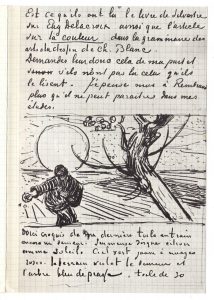 Est ce qu'ils ont lu le livre de Silvestre
sur Eug Delacroix ainsi que l'article
sur la couleur dans la grammaire des
arts du dessin de Ch. Blanc.
Demandes leur donc cela de ma part et
sinon s'ils n'ont pas lu cela qu'ils
le lisent. Je pense moi à Rembrandt
plus qu'il ne peut paraître dans mes
études.
Voici croquis de ma dernière toile en train
encore un semeur. Immense disque citron
comme soleil. Ciel vert jaune à nuages
roses. le terrain violet le semeur et
l'arbre bleu de prusse. toile de 30